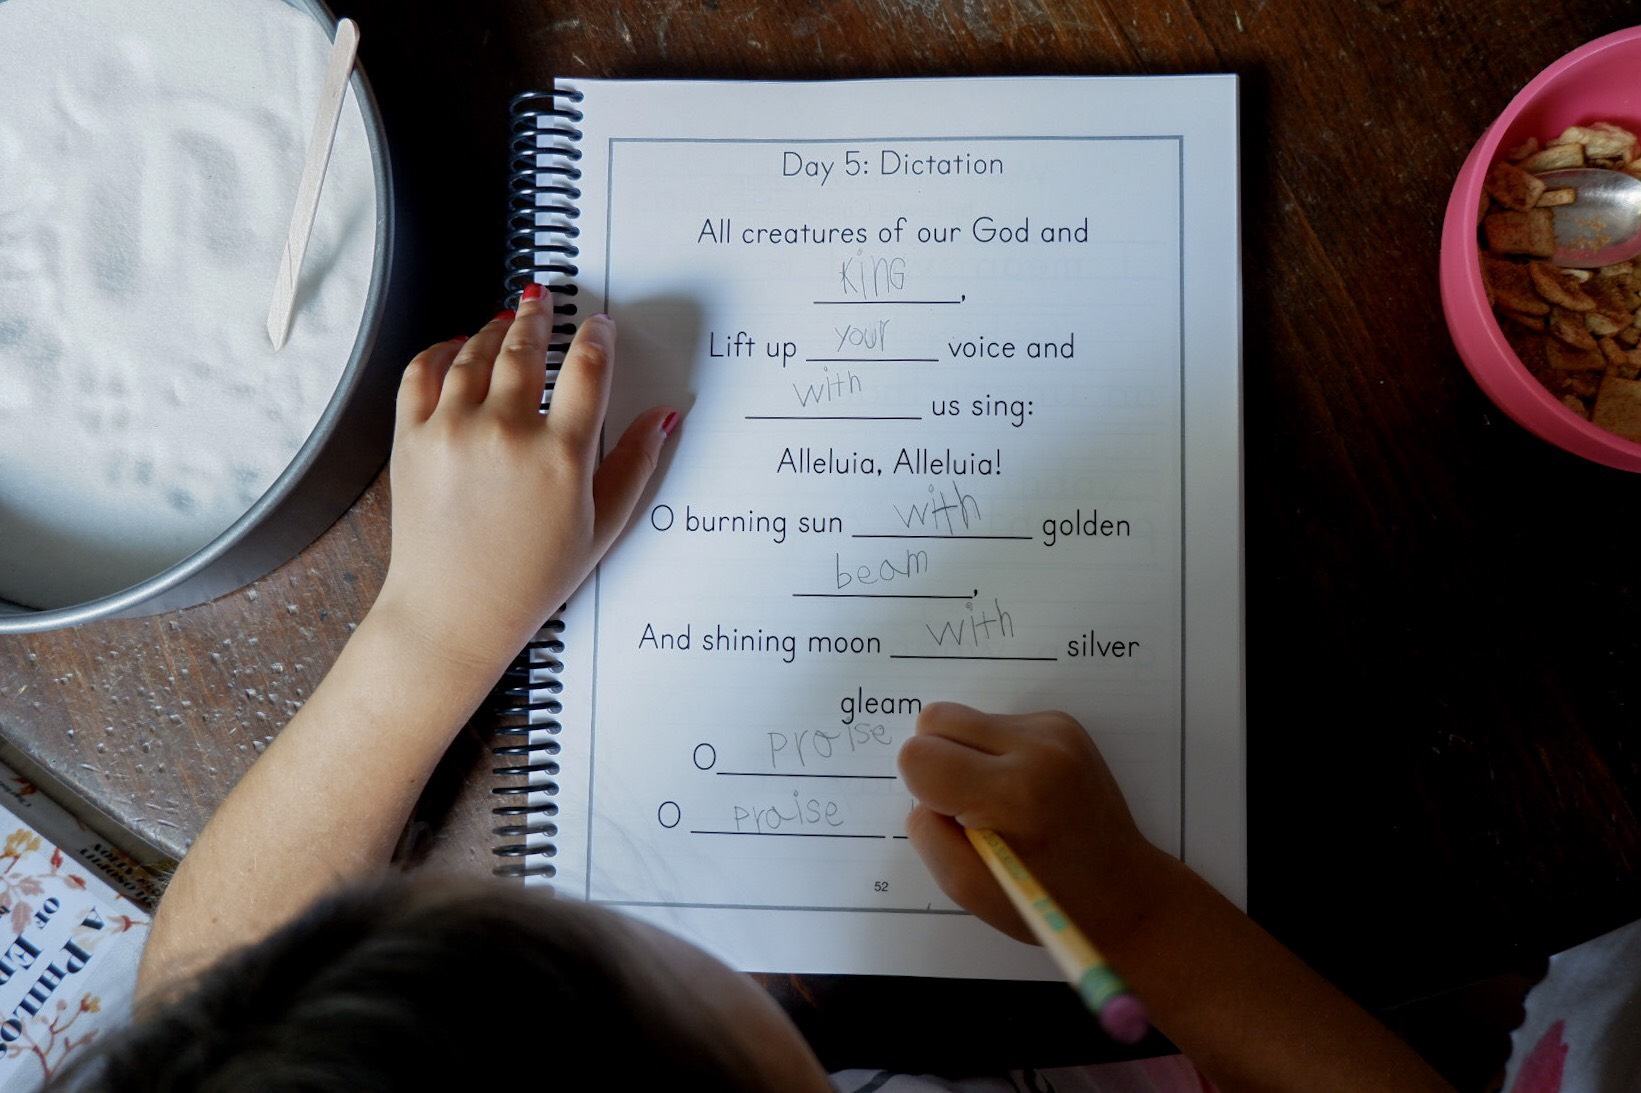 Day 5: Dictation
All creatures of our God and
KinG,
Lift up your voice and
with us sing:
Alleluia, Alleluia!
O burning sun with golden
beam,
And shining moon with silver
gleam
O praise
O praise
52
A PHILOS
OF ED